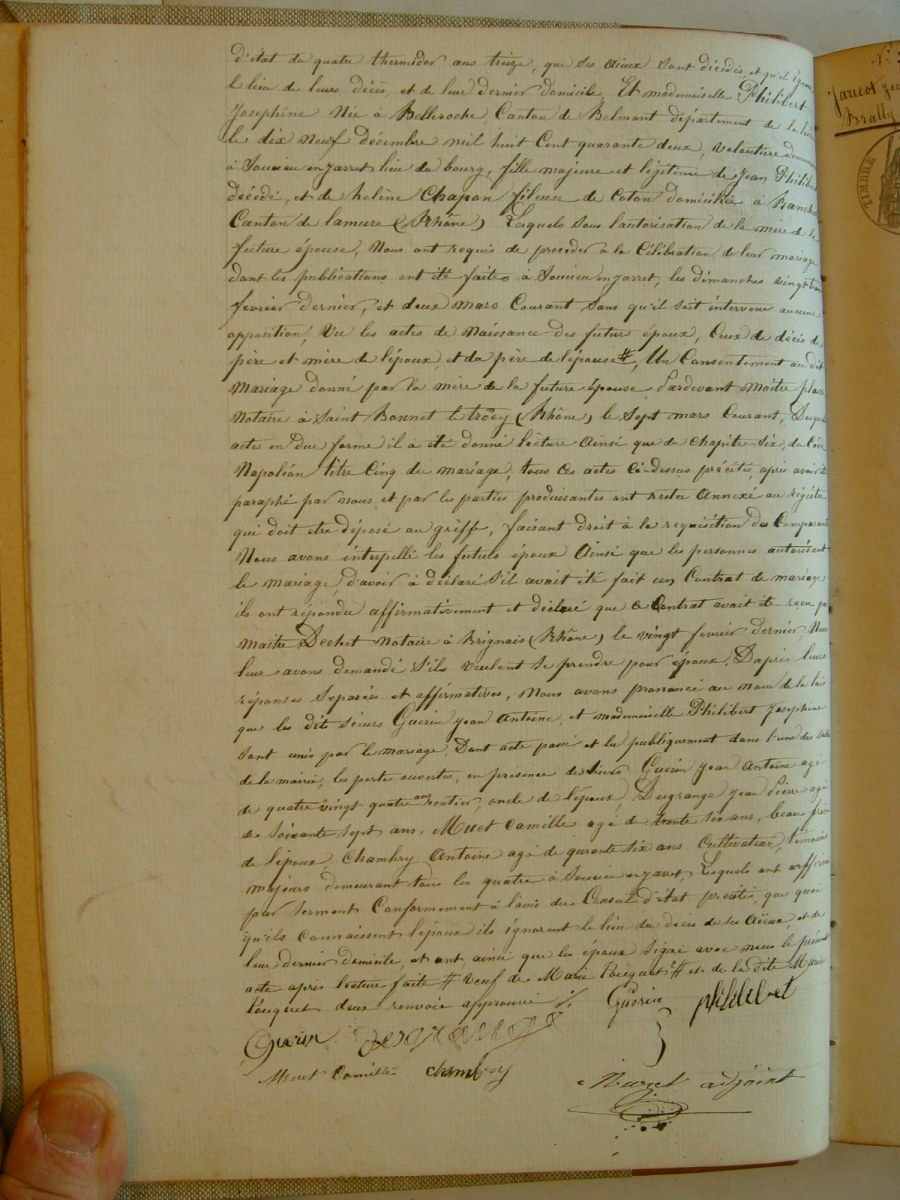 d'état du quatre thermidor ans treize, que ses aieux sont décédés, et qu'il ignore
le lieu de leurs décès, et de leur dernier domicile, Et mademoiselle Philibert
Josephine Née à Belleroche, Canton de Belmont département de la Loire
le dix neuf décembre mil huit Cent quarante deux, demeurant
à Soucieu en jarret lieu du bourg, fille majeure et légitime de Jean Philibert
décédé, et de helène Chapon fileuse de coton domiciliée à Ranchal
Canton de lamure (Rhône) Lesquels sous l'autorisation de la mère de la
future épouse, Nous ont requis de procéder à la Célébration de leur mariage
dont les publications ont été faites à Soucieu en jarret, les dimanches vingt trois
fevrier dernier, et deux mars Courant sans qu'il soit intervenu aucune
opposition, Vu les actes de Naissance des futurs époux, Ceux de décès de
père et mère de l'époux, et du père de l'épouse #, Un Consentement au dit
Mariage donné par la mère de la future épouse Pardevant Maître
Notaire à Saint Bonnet le troncy (Rhône) le Sept mars Courant, Desquels
actes en due forme il a été donné lecture ainsi que du chapitre Six, du Code
Napoléon titre Cinq du mariage, tous ces actes Ci-dessus précités, après avoir été
paraphé par nous et par les parties produisantes ont restes Annexé au régistre
qui doit etre déposé au griffe, faisant droit à la requisition des Comparants
Nous avons interpellé les futurs époux Ainsi que les personnes autorisant
le mariage, d'avoir à déclaré s'il avait été fait un Contrat de mariage
ils ont répondu affirmativement et déclaré que ce Contrat avait été recu par
maitre Dechet Notaire à Brignais (Rhône) le vingt fevrier dernier Nous
leur avons demandé s'ils veulent se prendre pour époux. D'après leurs
réponses séparées et affirmatives, Nous avons prononcé au nom de la loi
que les dit sieurs Guerin jean Antoine, et mademoiselle Philibert Josephine
sont unis par le mariage. Dont acte passé et lu publiquement dans l'une des salles
de la mairie, les porte ouvertes, en présence de sieurs Guerin jean Antoine agé
de quatre vingt quatre ans rentier, oncle de l'époux, Desgrange jean Pierre agé
de soixante sept ans, Muet Camille agé de trente six ans, beau frère
de l'époux, Chambry Antoine agé de quarante six ans Cultivateur, témoins
majeurs demeurant tous les quatre à Soucieu en jarret Lesquels ont affirmé
par serment Conformément à l'avis du Conseil d'état précité, que quoi
qu'ils connaissent l'époux ils ignorent le lieu du décès de ses Aïeux, et de
leur dernier domicile et ont ainsi que les époux signé avec nous le présent
acte après lecture faite # Veuf de Marie Pouguet # et de la dite Marie
Pouguet deux renvoie approuvé ./. Guerin philibert
Guerin desgrange
Muet Camille chambry
adjoint
N°
Jaricot
TIMBRE